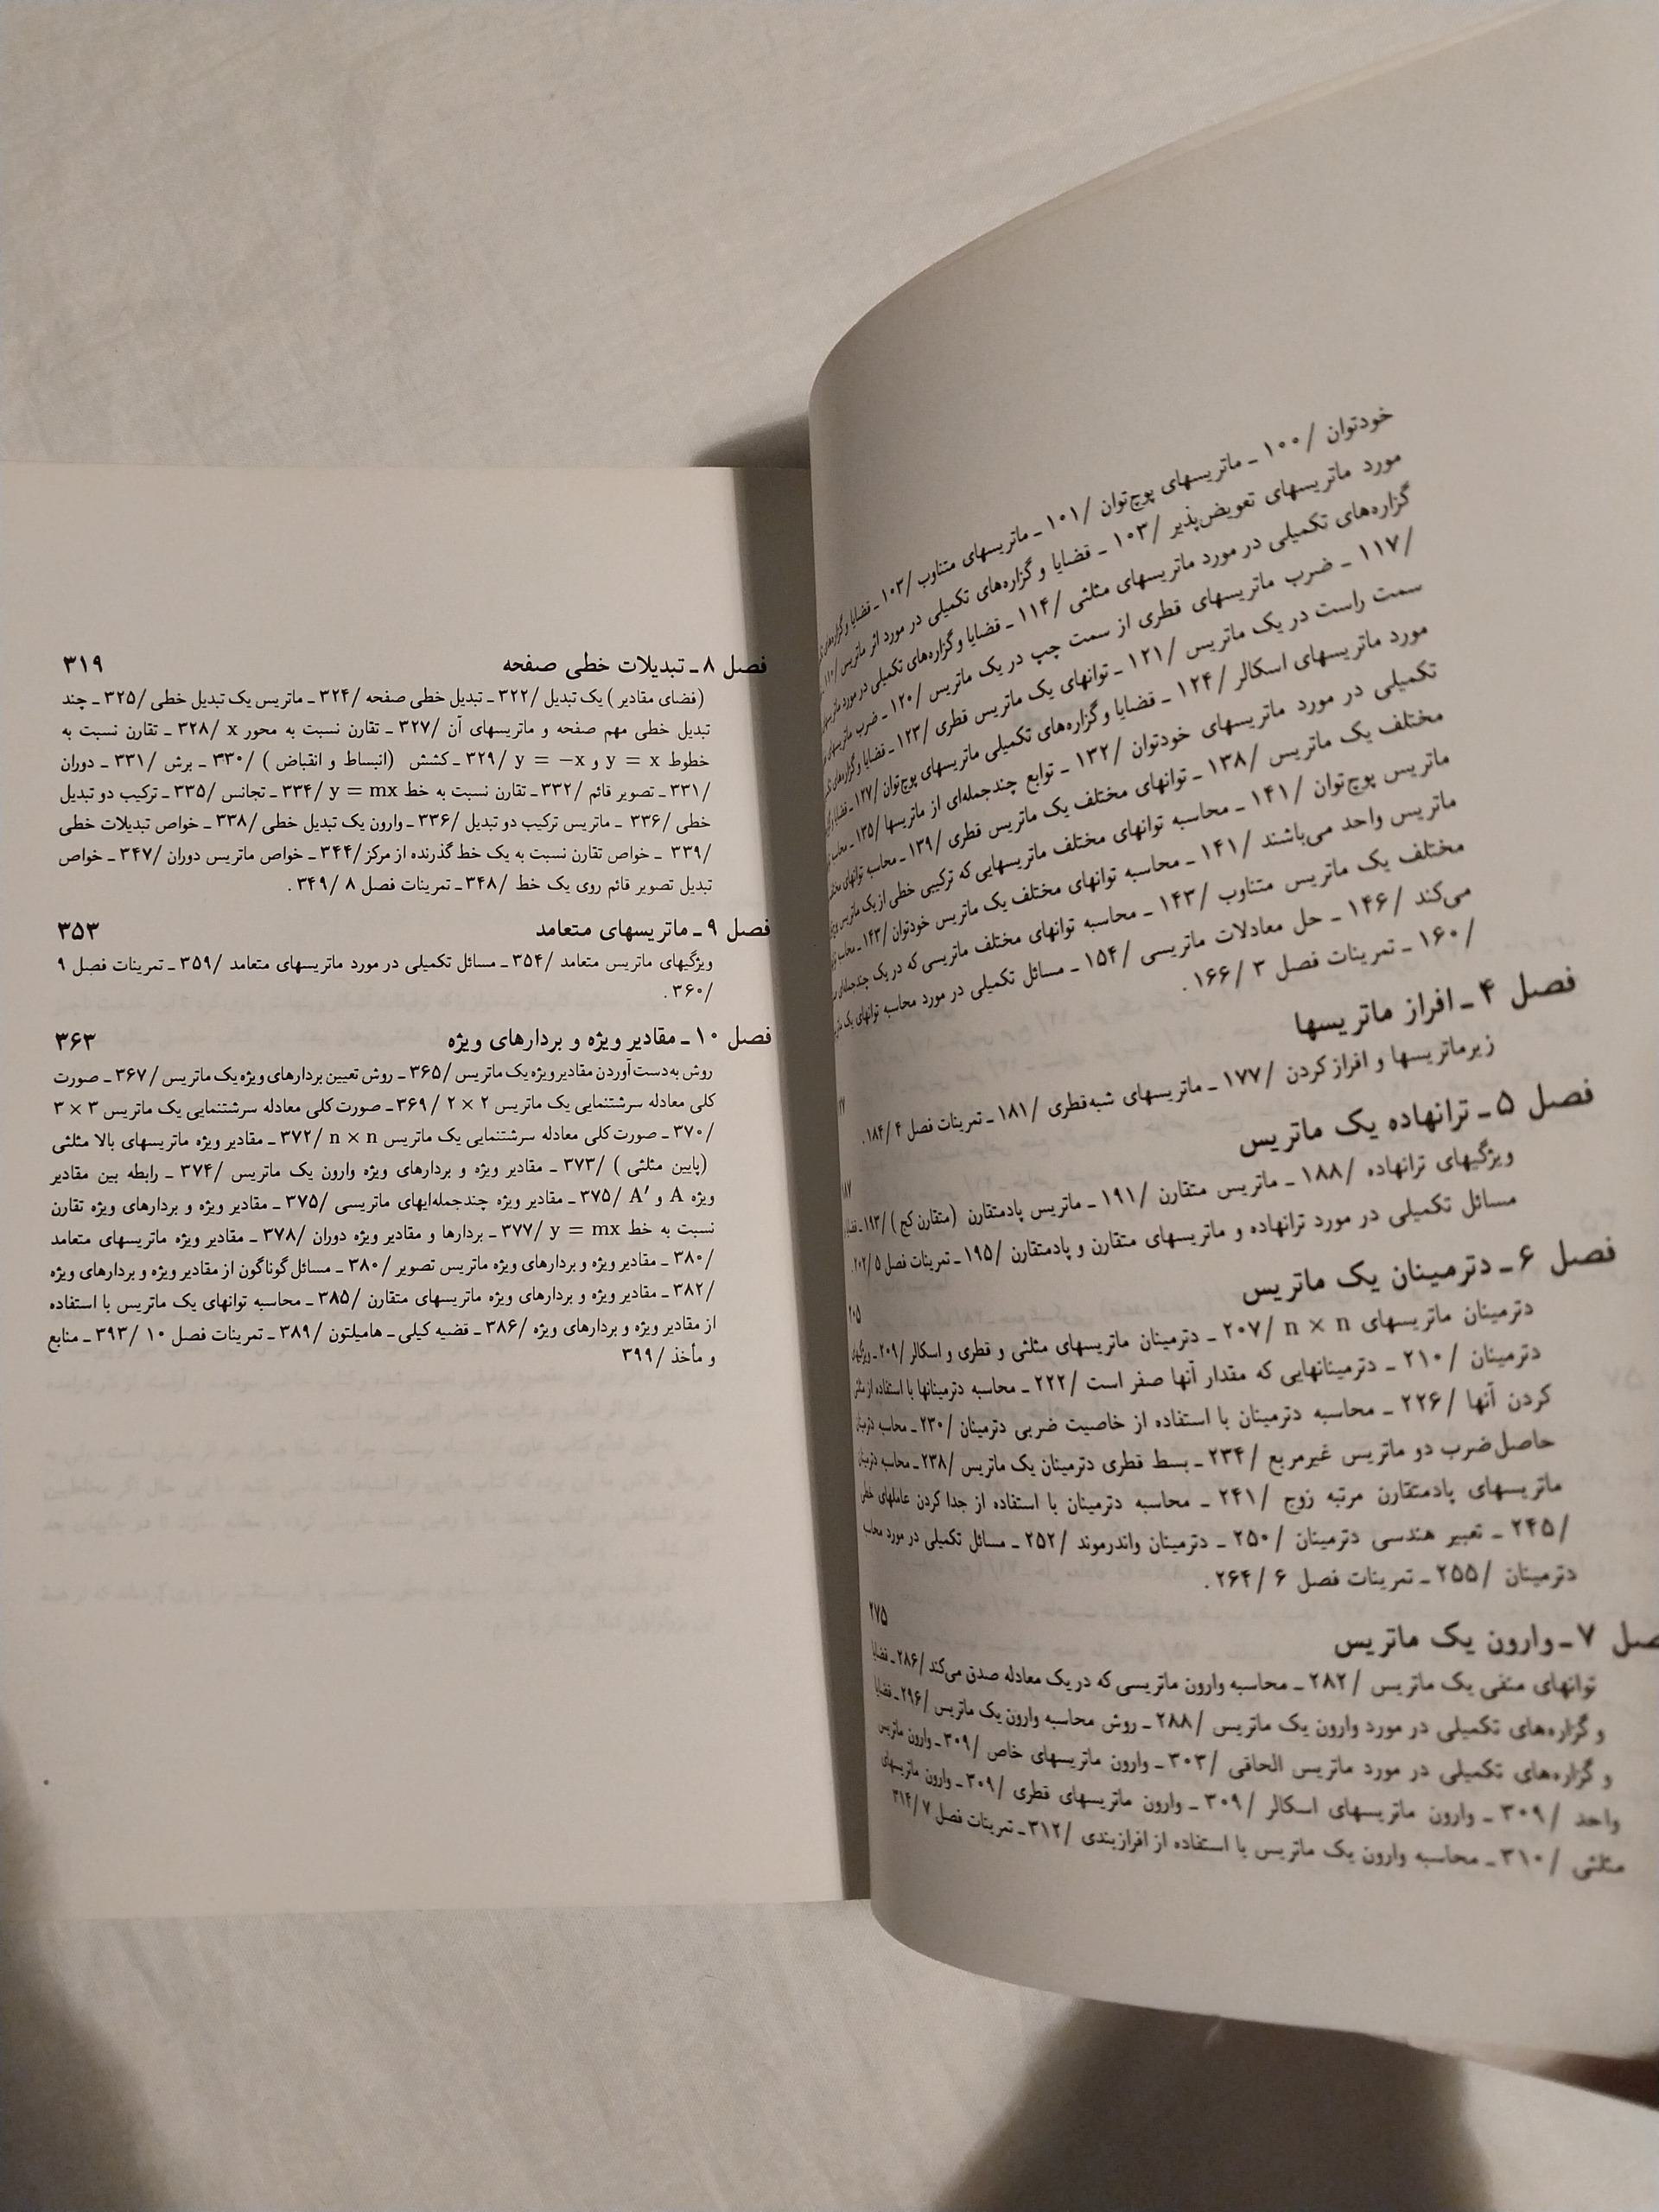 خودتوان /۱۰۰ ـ ماتریسهای پوچ‌توان /۱۰۱ ـ ماتریسهای متناوب /۱۰۳ ـ قضایا و گزاره‌های
مورد ماتریسهای تعویض‌پذیر /۱۰۳ ـ قضایا و گزاره‌های تکمیلی در مورد اثر ماتریس /۱۱۰
گزاره‌های تکمیلی در مورد ماتریسهای مثلثی /۱۱۴ ـ قضایا و گزاره‌های تکمیلی در مورد
/۱۱۷ ـ ضرب ماتریسهای قطری از سمت چپ در یک ماتریس /۱۲۰ ـ ضرب ماتریسهای
سمت راست در یک ماتریس /۱۲۱ ـ توانهای یک ماتریس قطری /۱۲۳ ـ قضایا و گزاره‌های
مورد ماتریسهای اسکالر /۱۲۴ ـ قضایا و گزاره‌های تکمیلی ماتریسهای پوچ‌توان /۱۲۷ ـ قضایا
تکمیلی در مورد ماتریسهای خودتوان /۱۳۲ ـ توابع چندجمله‌ای از ماتریسها /۱۳۵ ـ
مختلف یک ماتریس /۱۳۸ ـ توانهای مختلف یک ماتریس قطری /۱۳۹ ـ محاسبه توانهای
ماتریس پوچ‌توان /۱۴۱ ـ محاسبه توانهای مختلف ماتریسهایی که ترکیبی خطی از یک ماتریس
ماتریس واحد می‌باشند /۱۴۱ ـ محاسبه توانهای مختلف یک ماتریس خودتوان /۱۴۳ ـ
مختلف یک ماتریس متناوب /۱۴۳ ـ محاسبه توانهای مختلف ماتریسی که در یک چندجمله‌ای
می‌کند /۱۴۶ ـ حل معادلات ماتریسی /۱۵۴ ـ مسائل تکمیلی در مورد محاسبه توانهای یک
/۱۶۰ ـ تمرینات فصل ۳ /۱۶۶ .
فصل ۴ ـ افراز ماتریسها
زیرماتریسها و افراز کردن /۱۷۷ ـ ماتریسهای شبه‌قطری /۱۸۱ ـ تمرینات فصل ۴ /۱۸۴ .
فصل ۵ ـ ترانهاده یک ماتریس ۱۸۷
ویژگیهای ترانهاده /۱۸۸ ـ ماتریس متقارن /۱۹۱ ـ ماتریس پادمتقارن (متقارن کج) /۱۹۳ ـ
مسائل تکمیلی در مورد ترانهاده و ماتریسهای متقارن و پادمتقارن /۱۹۵ ـ تمرینات فصل ۵ /۲۰۲.
فصل ۶ ـ دترمینان یک ماتریس ۲۰۵
دترمینان ماتریسهای n × n /۲۰۷ ـ دترمینان ماتریسهای مثلثی و قطری و اسکالر /۲۰۹ ـ ویژگیهای
دترمینان /۲۱۰ ـ دترمینانهایی که مقدار آنها صفر است /۲۲۲ ـ محاسبه دترمینانها با استفاده از
کردن آنها /۲۲۶ ـ محاسبه دترمینان با استفاده از خاصیت ضربی دترمینان /۲۳۰ ـ محاسبه دترمینان
حاصل‌ضرب دو ماتریس غیرمربع /۲۳۴ ـ بسط قطری دترمینان یک ماتریس /۲۳۸ ـ محاسبه دترمینان
ماتریسهای پادمتقارن مرتبه زوج /۲۴۱ ـ محاسبه دترمینان با استفاده از جدا کردن عاملهای خطی
/۲۴۵ ـ تعبیر هندسی دترمینان /۲۵۰ ـ دترمینان واندرموند /۲۵۲ ـ مسائل تکمیلی در مورد
دترمینان /۲۵۵ ـ تمرینات فصل ۶ /۲۶۴ .
صل ۷ ـ وارون یک ماتریس ۲۷۵
توانهای منفی یک ماتریس /۲۸۲ ـ محاسبه وارون ماتریسی که در یک معادله صدق می‌کند /۲۸۶ ـ قضایا
و گزاره‌های تکمیلی در مورد وارون یک ماتریس /۲۸۸ ـ روش محاسبه وارون یک ماتریس /۲۹۶ ـ قضایا
و گزاره‌های تکمیلی در مورد ماتریس الحاقی /۳۰۳ ـ وارون ماتریسهای خاص /۳۰۹ ـ وارون ماتریس
واحد /۳۰۹ ـ وارون ماتریسهای اسکالر /۳۰۹ ـ وارون ماتریسهای قطری /۳۰۹ ـ وارون ماتریسهای
مثلثی /۳۱۰ ـ محاسبه وارون یک ماتریس با استفاده از افرازبندی /۳۱۲ ـ تمرینات فصل ۷ /۳۱۴
فصل ۸ ـ تبدیلات خطی صفحه ۳۱۹
(فضای مقادیر) یک تبدیل /۳۲۲ ـ تبدیل خطی صفحه /۳۲۴ ـ ماتریس یک تبدیل خطی /۳۲۵ ـ چند
تبدیل خطی مهم صفحه و ماتریسهای آن /۳۲۷ ـ تقارن نسبت به محور x /۳۲۸ ـ تقارن نسبت به
خطوط y = x و y = −x /۳۲۹ ـ کشش (انبساط و انقباض) /۳۳۰ ـ برش /۳۳۱ ـ دوران
/۳۳۱ ـ تصویر قائم /۳۳۲ ـ تقارن نسبت به خط y = mx /۳۳۴ ـ تجانس /۳۳۵ ـ ترکیب دو تبدیل
خطی /۳۳۶ ـ ماتریس ترکیب دو تبدیل /۳۳۶ ـ وارون یک تبدیل خطی /۳۳۸ ـ خواص تبدیلات خطی
/۳۳۹ ـ خواص تقارن نسبت به یک خط گذرنده از مرکز /۳۴۴ ـ خواص ماتریس دوران /۳۴۷ ـ خواص
تبدیل تصویر قائم روی یک خط /۳۴۸ ـ تمرینات فصل ۸ /۳۴۹ .
فصل ۹ ـ ماتریسهای متعامد ۳۵۳
ویژگیهای ماتریس متعامد /۳۵۴ ـ مسائل تکمیلی در مورد ماتریسهای متعامد /۳۵۹ ـ تمرینات فصل ۹
/۳۶۰ .
فصل ۱۰ ـ مقادیر ویژه و بردارهای ویژه ۳۶۳
روش به‌دست‌آوردن مقادیر ویژه یک ماتریس /۳۶۵ ـ روش تعیین بردارهای ویژه یک ماتریس /۳۶۷ ـ صورت
کلی معادله سرشتنمایی یک ماتریس ۲ × ۲ /۳۶۹ ـ صورت کلی معادله سرشتنمایی یک ماتریس ۳ × ۳
/۳۷۰ ـ صورت کلی معادله سرشتنمایی یک ماتریس n × n /۳۷۲ ـ مقادیر ویژه ماتریسهای بالا مثلثی
(پایین مثلثی) /۳۷۳ ـ مقادیر ویژه و بردارهای ویژه وارون یک ماتریس /۳۷۴ ـ رابطه بین مقادیر
ویژه A و A′ /۳۷۵ ـ مقادیر ویژه چندجمله‌ایهای ماتریسی /۳۷۵ ـ مقادیر ویژه و بردارهای ویژه تقارن
نسبت به خط y = mx /۳۷۷ ـ بردارها و مقادیر ویژه دوران /۳۷۸ ـ مقادیر ویژه ماتریسهای متعامد
/۳۸۰ ـ مقادیر ویژه و بردارهای ویژه ماتریس تصویر /۳۸۰ ـ مسائل گوناگون از مقادیر ویژه و بردارهای ویژه
/۳۸۲ ـ مقادیر ویژه و بردارهای ویژه ماتریسهای متقارن /۳۸۵ ـ محاسبه توانهای یک ماتریس با استفاده
از مقادیر ویژه و بردارهای ویژه /۳۸۶ ـ قضیه کیلی ـ هامیلتون /۳۸۹ ـ تمرینات فصل ۱۰ /۳۹۳ ـ منابع
و مأخذ /۳۹۹